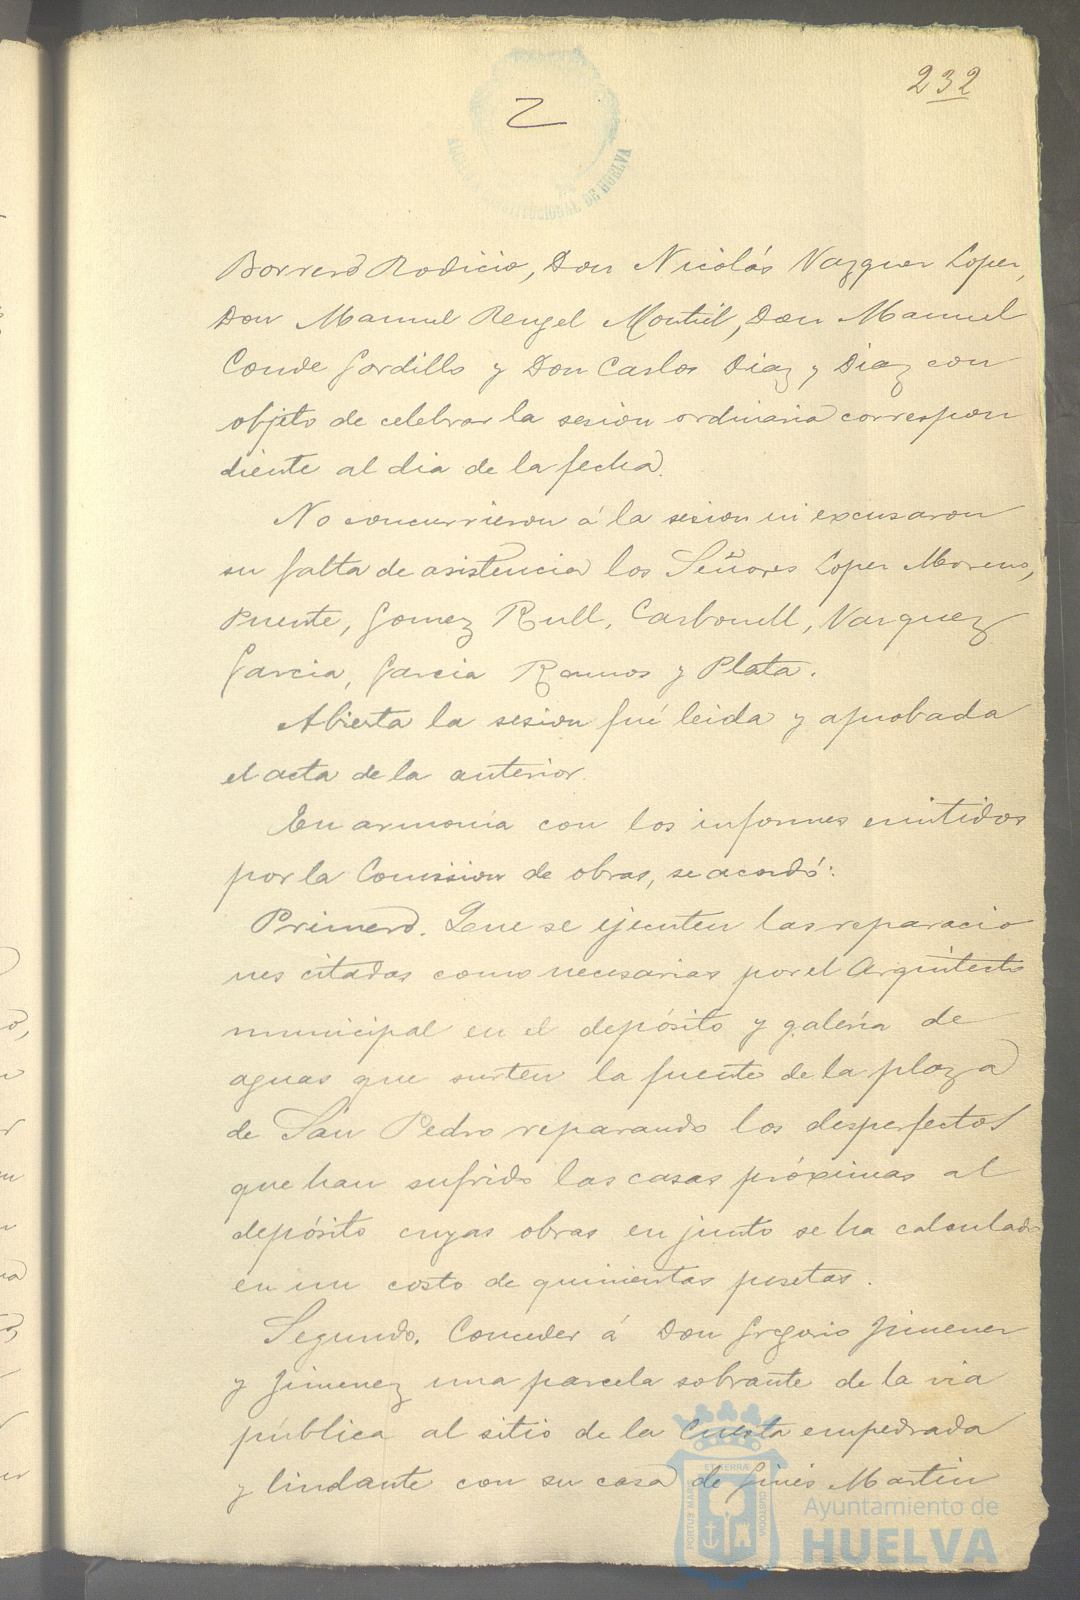 232
2
ALCALDIA CONSTITUCIONAL DE HUELVA
Borrero Rodicio, Don Nicolás Vazquez Lopez,
Don Manuel Rengel Montiel, Don Manuel
Conde Gordillo y Don Carlos Diaz y Diaz con
objeto de celebrar la sesion ordinaria correspon
diente al dia de la fecha.
No concurrieron á la sesion ni excusaron
su falta de asistencia los Señores Lopez Moreno,
Puente, Gomez Rull, Carbonell, Vazquez
Garcia, Garcia Ramos y Plata.
Abierta la sesion fué leida y aprobada
el acta de la anterior.
En armonía con los informes emitidos
por la Comission de obras, se acordó:
Primero. Que se ejecuten las reparacio
nes citadas como necesarias por el Arquitecto
municipal en el depósito y galería de
aguas que surten la fuente de la plaza
de San Pedro reparando los desperfectos
que han sufrido las casas próximas al
depósito cuyas obras en junto se ha calculado
en un costo de quinientas pesetas.
Segundo. Conceder á Don Gregorio Jimenez
y Jimenez una parcela sobrante de la via
pública al sitio de la Cuesta empedrada
y lindante con su casa de Ginés Martin
PORTUS MARIS ET TERRÆ CUSTODIA
Ayuntamiento de
HUELVA